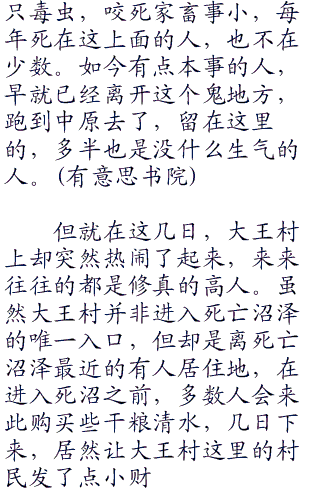 只毒虫，咬死家畜事小，每
年死在这上面的人，也不在
少数。如今有点本事的人，
早就已经离开这个鬼地方，
跑到中原去了，留在这里
的，多半也是没什么生气的
人。(有意思书院)
但就在这几日，大王村
上却突然热闹了起来，来来
往往的都是修真的高人。虽
然大王村并非进入死亡沼泽
的唯一入口，但却是离死亡
沼泽最近的有人居住地，在
进入死沼之前，多数人会来
此购买些干粮清水，几日下
来，居然让大王村这里的村
民发了点小财